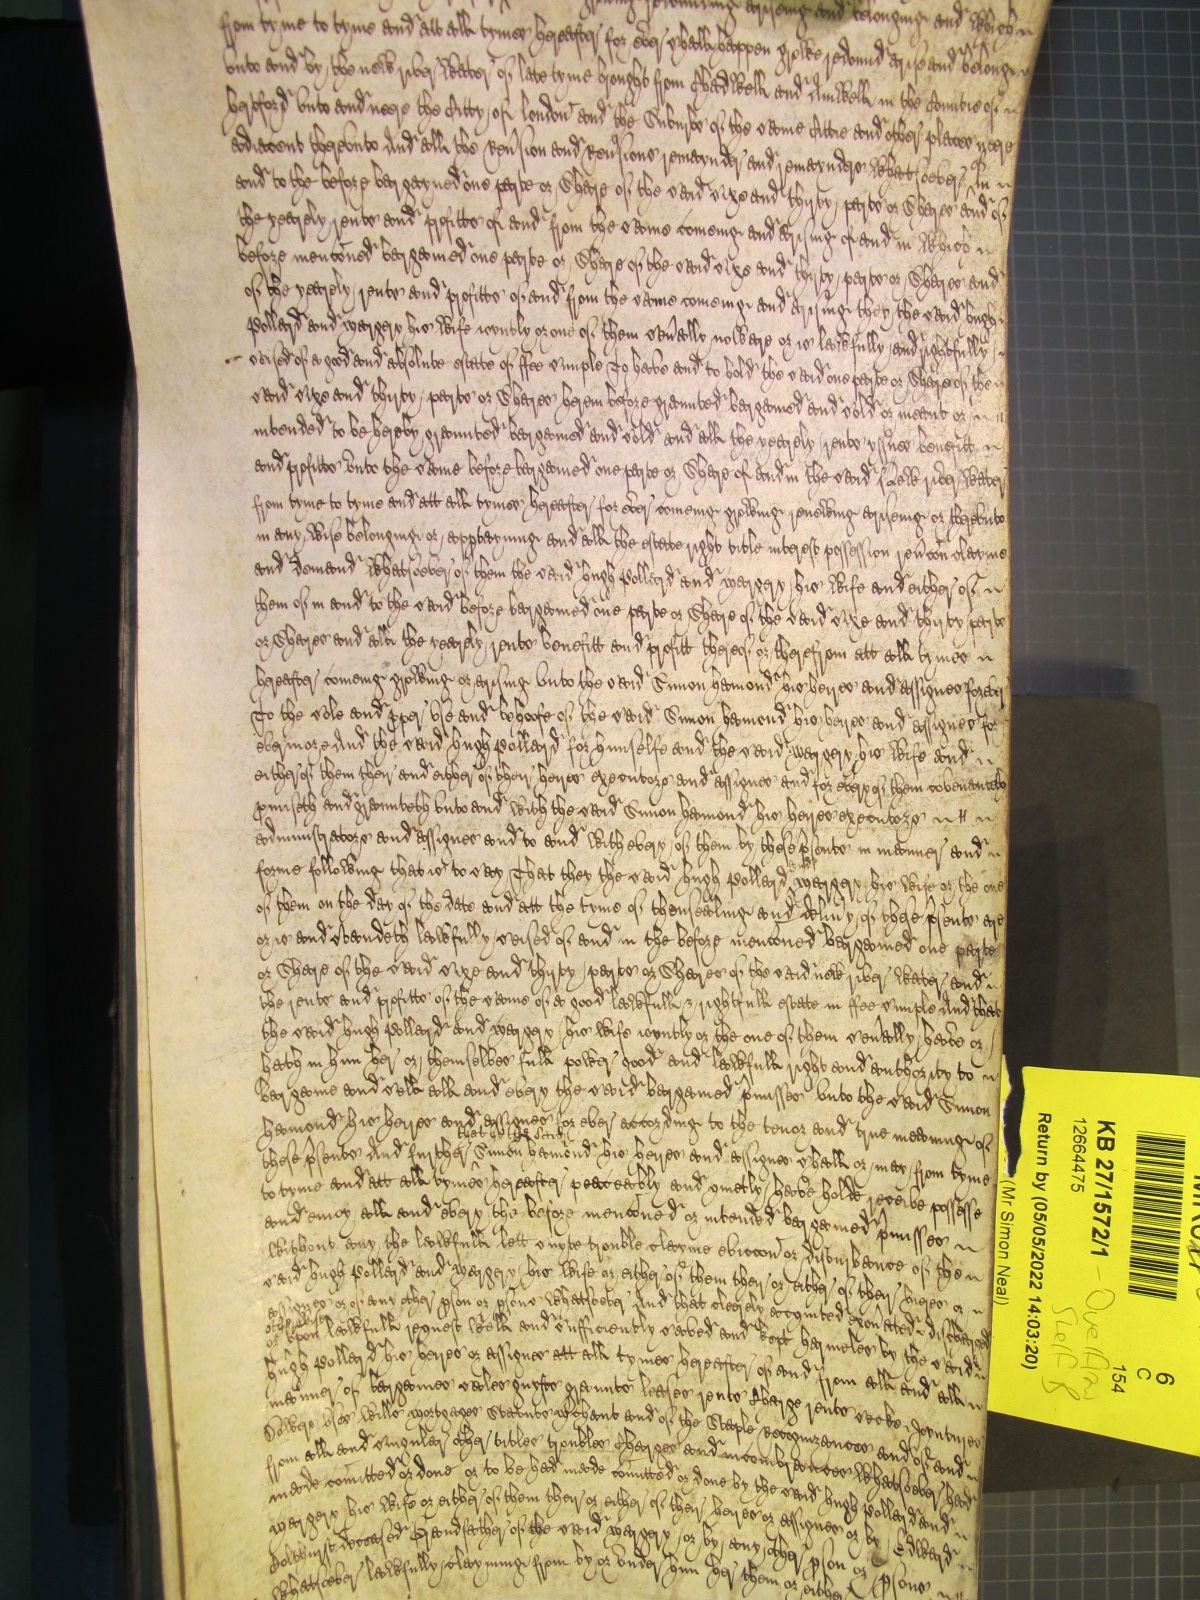 growing redounding ariseing and belonging and which
from tyme to tyme and att all tymes hereafter for ever shall happen growe redound arise and belonge
unto and by the new river water of late tyme brought from Chadwell and Amwell in the Countie of
hertford unto and neere the Citty of london and the Suburbs of the same Cittie and other places neere
adiacent thereunto And all the Reversion and Reversions remaynder and remaynders whatsoever of in
and to the before bargayned one parte or Share of the said sixe and thirty parts or Shares and of
the yearely rents and profitts of and from the same comeing and ariseing of and in which
before menconed bargained one parte or Share of the said sixe and thirty parts or Shares and
of the yearely rents and profitts of and from the same comeing and ariseing they the said hugh
Pollard and Margery his wife ioyntly or one of them severally now are or is lawfully and rightfully
seised of a good and absolute estate of ffee simple To have and to hold the said one parte or Share of the
said sixe and thirty parts or Shares herein before graunted bargained and sold or meant or
intended to be hereby graunted bargained and sold and all the yearely rents yssues benefitts
and profitts unto the same before bargained one parte or Share of and in the said New river water
from tyme to tyme and att all tymes hereafter for ever comeing groweing renewing ariseing or thereunto
in any wise belonging or apptayning and all the estate right title interest possession revercon clayme
and demand whatsoever of them the said hugh Pollard and Margery his wife and either of
them of in and to the said before bargained one parte or Share of the said sixe and thirty parts
or Shares and all the yearely rents benefitt and profitt thereof or therefrom att all tymes
hereafter comeing groweing or arising unto the said Simon hamond his heires and assignes forever
To the sole and pper use and behoofe of the said Simon hamond his heires and assignes for
evermore And the said hugh Pollard for himselfe and the said Margery his wife and
either of them their and either of their heires executors and assignes and for every of them covenanteth
pmiseth and graunteth unto and with the said Simon hamond his heires executors
administrators and assignes and to and with every of them by these psents in manner and
forme following that is to say That they the said hugh Pollard and Margery his wife or the one
of them on the day of the date and att the tyme of thensealing and delivy of these psents are
or is and standeth lawfully seised of and in the before menconed bargained one parte
or Share of the said sixe and thirty parts or Shares of the said new river water and
the rents and profitts of the same of a good lawfull & rightfull estate in ffee simple And that
the said hugh Pollard and Margery his wife ioyntly or the one of them severally have or
hath in him her or themselves full power good and lawfull right and authority to
bargaine and sell all and every the said bargained pmisses unto the said Simon
hamond his heires and assignes for ever according to the tenor and true meaning of
these psents And further that he the said Simon hamond his heires and assignes shall or may from tyme
to tyme and att all tymes hereafter peaceably and quietly have holde receive possesse
and enioy all and every the before menconed or intended bargained pmisses
without any the lawfull lett suyte trouble clayme eviccon or disturbance of the
said hugh Pollard and Margery his wife or either of them their or either of their heires or
assignes or of any other pson or psons whatsoever And that clearely acquited exonated & discharged
or upon lawfull request well and sufficiently saved and kept harmeles by the said
hugh Pollard his heires or assignes att all tymes hereafter of and from all and all
manner of bargaines sales guyfts graunts leases rents Charge rents secke Joyntures
Dowers uses wills mortgages Statuts mchant and of the Staple recognizances and of and
from all and singuler other titles troubles Charges and incombrances whatsoever had
made comitted or done or to be had made comitted or done by the said hugh Pollard and
Margery his wife or either of them their or either of their heires or assignes or by Edward
Polthurst deceased Grandfather of the said Margery or by any other pson or psons
whatsoever lawfully clayming from by or under him her them or either
6
C
154
KB 27/1572/1 -
12664475
Return by (05/05/2022 14:03:20)
(Mr Simon Neal)
Shelf 8